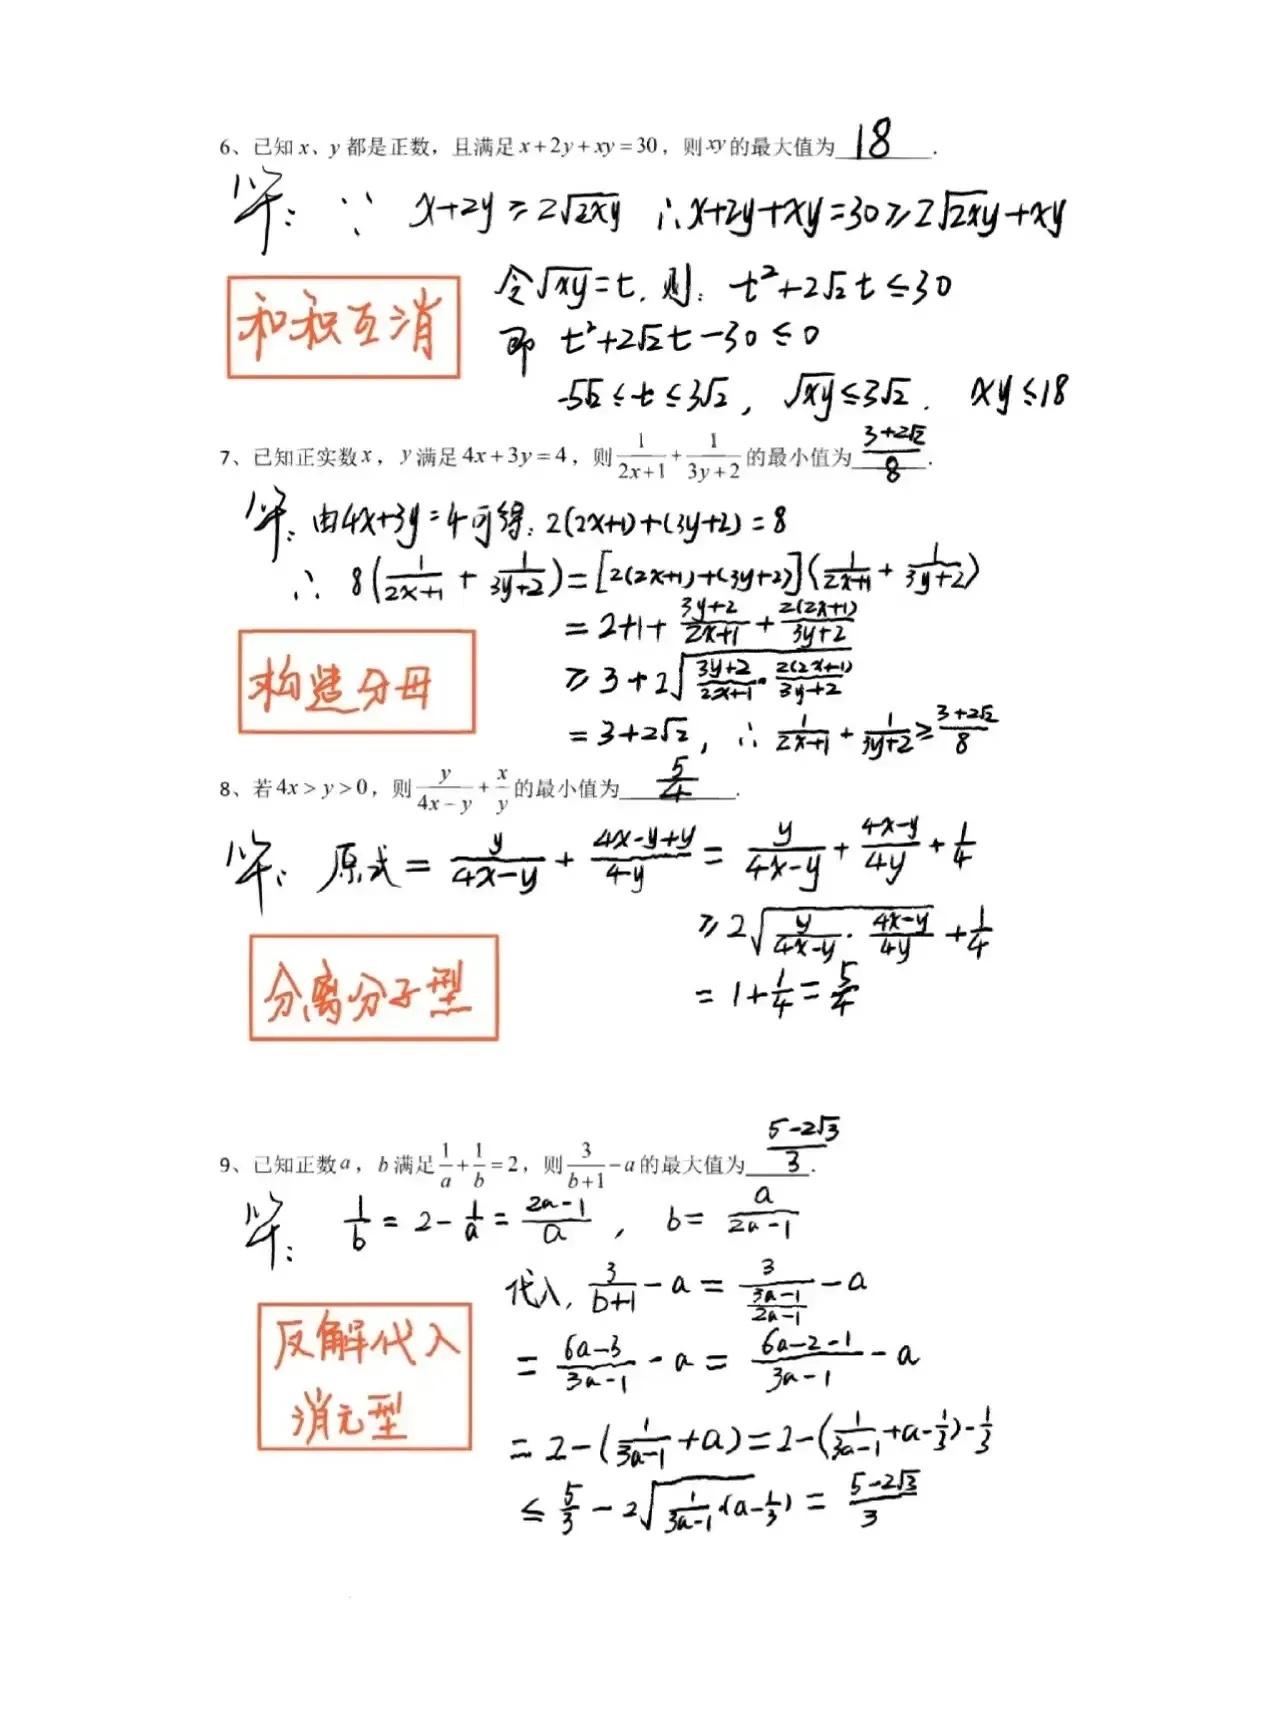 6、已知x、y都是正数，且满足x+2y+xy=30，则xy的最大值为 18 .
解：∵ x+2y≥2√(2xy) ∴x+2y+xy=30≥2√(2xy)+xy
令√(xy)=t，则：t²+2√2t≤30
和积互消
即 t²+2√2t-30≤0
-5√2≤t≤3√2，√(xy)≤3√2. xy≤18
7、已知正实数x，y满足4x+3y=4，则1/(2x+1)+1/(3y+2)的最小值为 (3+2√2)/8 .
解：由4x+3y=4可得：2(2x+1)+(3y+2)=8
∴ 8(1/(2x+1)+1/(3y+2))=[2(2x+1)+(3y+2)](1/(2x+1)+1/(3y+2))
=2+1+(3y+2)/(2x+1)+2(2x+1)/(3y+2)
构造分母
≥3+2√((3y+2)/(2x+1)·2(2x+1)/(3y+2))
=3+2√2，∴1/(2x+1)+1/(3y+2)≥(3+2√2)/8
8、若4x>y>0，则y/(4x-y)+x/y的最小值为 5/4 .
解：原式=y/(4x-y)+(4x-y+y)/(4y)=y/(4x-y)+(4x-y)/(4y)+1/4
≥2√(y/(4x-y)·(4x-y)/(4y))+1/4
分离分子型
=1+1/4=5/4
9、已知正数a，b满足1/a+1/b=2，则3/(b+1)-a的最大值为 (5-2√3)/3 .
解：1/b=2-1/a=(2a-1)/a，b=a/(2a-1)
代入，3/(b+1)-a=3/((3a-1)/(2a-1))-a
反解代入
消元型
=(6a-3)/(3a-1)-a=(6a-2-1)/(3a-1)-a
=2-(1/(3a-1)+a)=2-(1/(3a-1)+a-1/3)-1/3
≤5/3-2√(1/(3a-1)·(a-1/3))=(5-2√3)/3